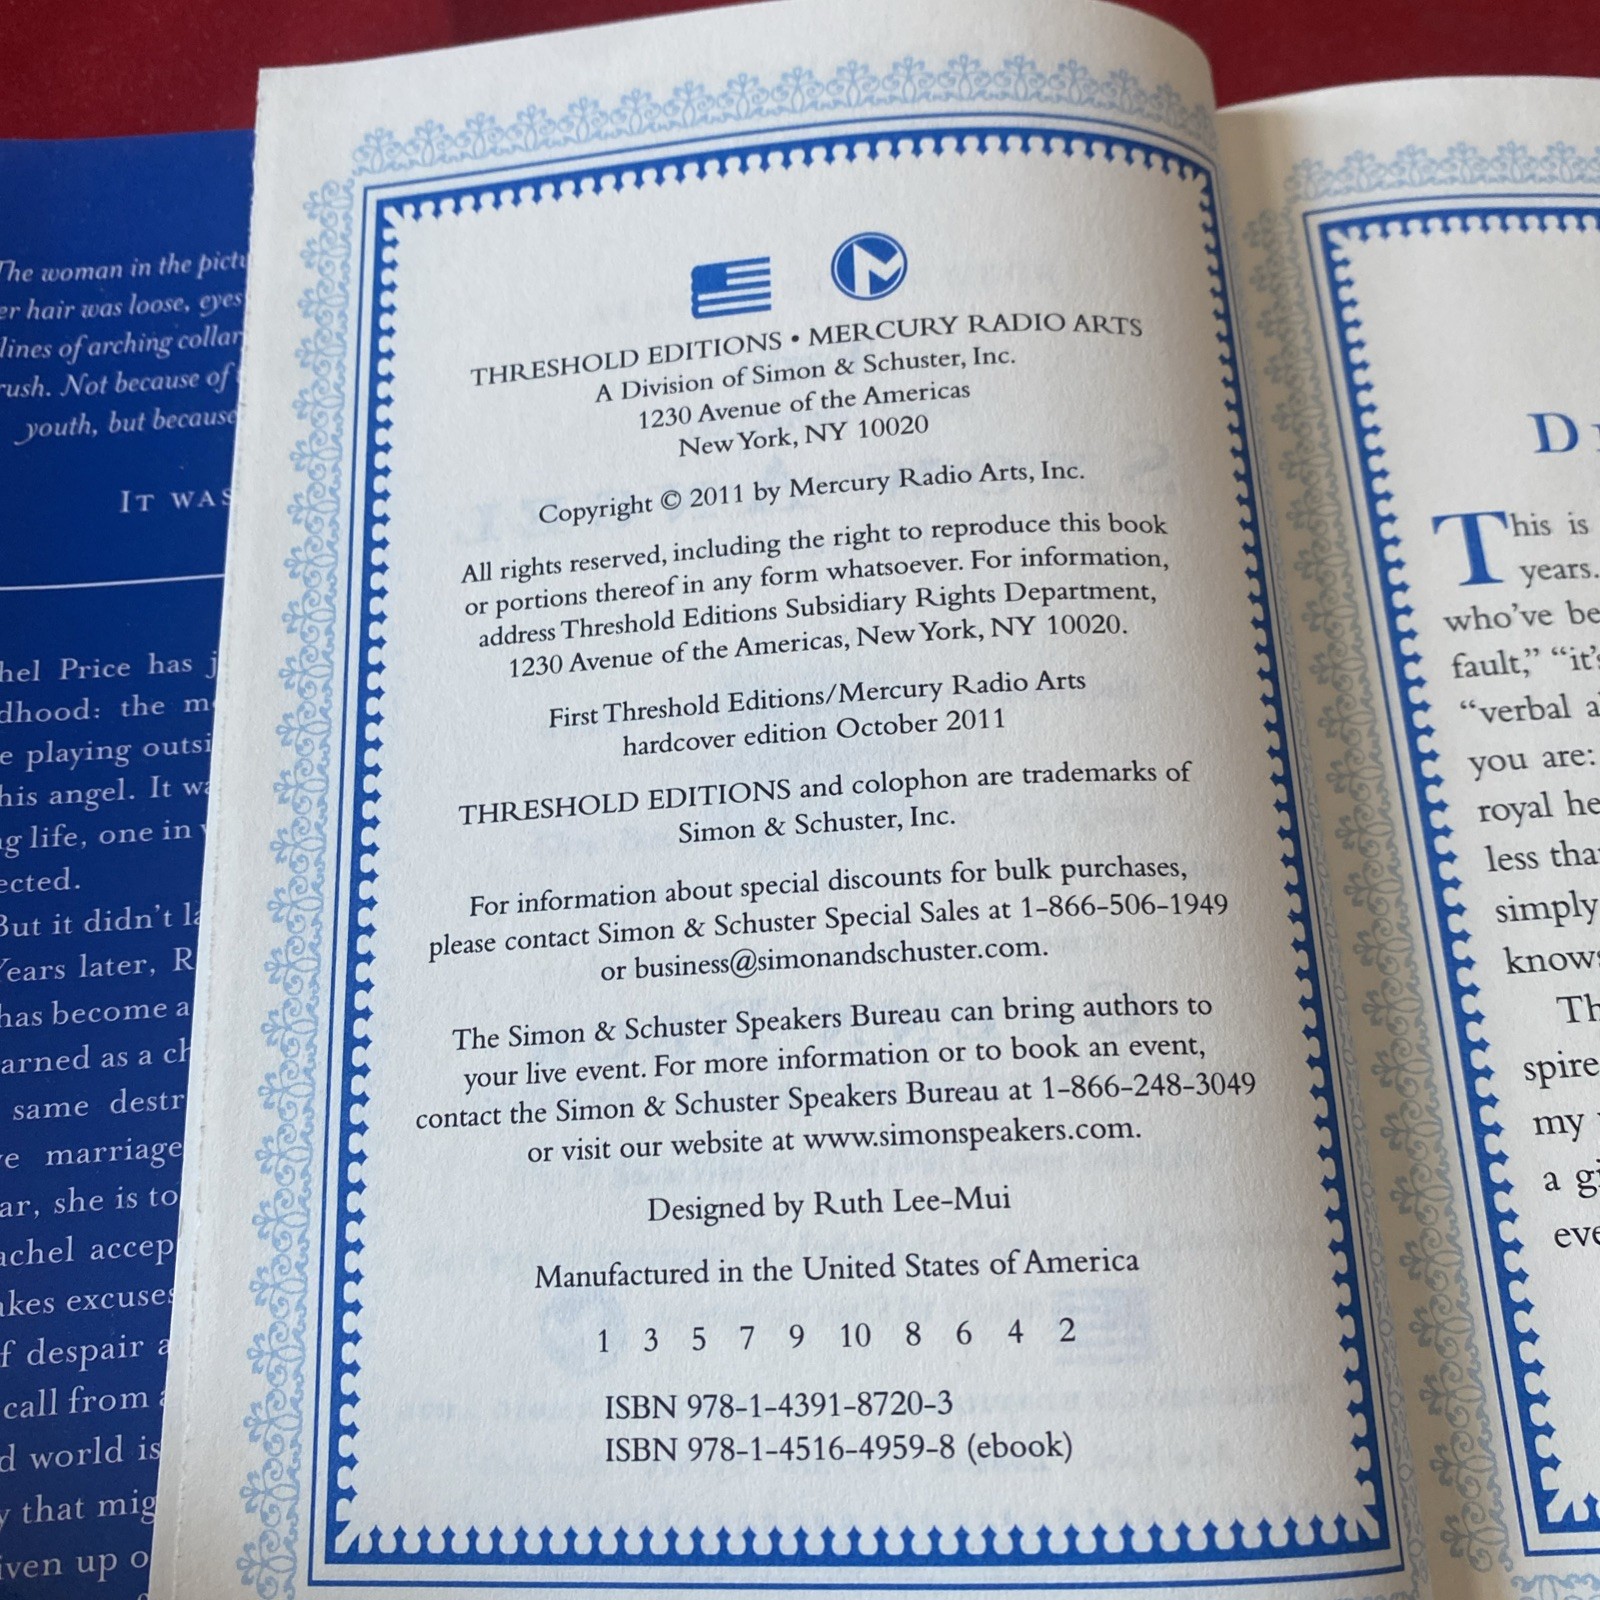 The woman in the
er hair was loose, eyes
lines of arching collar
rush. Not because of
youth, but because
IT WAS
hel Price has j
dhood: the m
e playing outsi
his angel. It wa
g life, one in
ected.
But it didn't la
Years later, R
has become a
arned as a ch
same destr
e marriage
ar, she is to
achel accep
akes excuses
f despair a
call from a
d world is
y that mig
iven up o
THRESHOLD EDITIONS • MERCURY RADIO ARTS
A Division of Simon & Schuster, Inc.
1230 Avenue of the Americas
New York, NY 10020
Copyright © 2011 by Mercury Radio Arts, Inc.
All rights reserved, including the right to reproduce this book
or portions thereof in any form whatsoever. For information,
address Threshold Editions Subsidiary Rights Department,
1230 Avenue of the Americas, New York, NY 10020.
First Threshold Editions/Mercury Radio Arts
hardcover edition October 2011
THRESHOLD EDITIONS and colophon are trademarks of
Simon & Schuster, Inc.
For information about special discounts for bulk purchases,
please contact Simon & Schuster Special Sales at 1-866-506-1949
or business@simonandschuster.com.
The Simon & Schuster Speakers Bureau can bring authors to
your live event. For more information or to book an event,
contact the Simon & Schuster Speakers Bureau at 1-866-248-3049
or visit our website at www.simonspeakers.com.
Designed by Ruth Lee-Mui
Manufactured in the United States of America
1 3 5 7 9 10 8 6 4 2
ISBN 978-1-4391-8720-3
ISBN 978-1-4516-4959-8 (ebook)
D
This is
years.
who've be
fault," "it's
"verbal a
you are:
royal he
less tha
simply
knows
Th
spire
my
a gi
eve